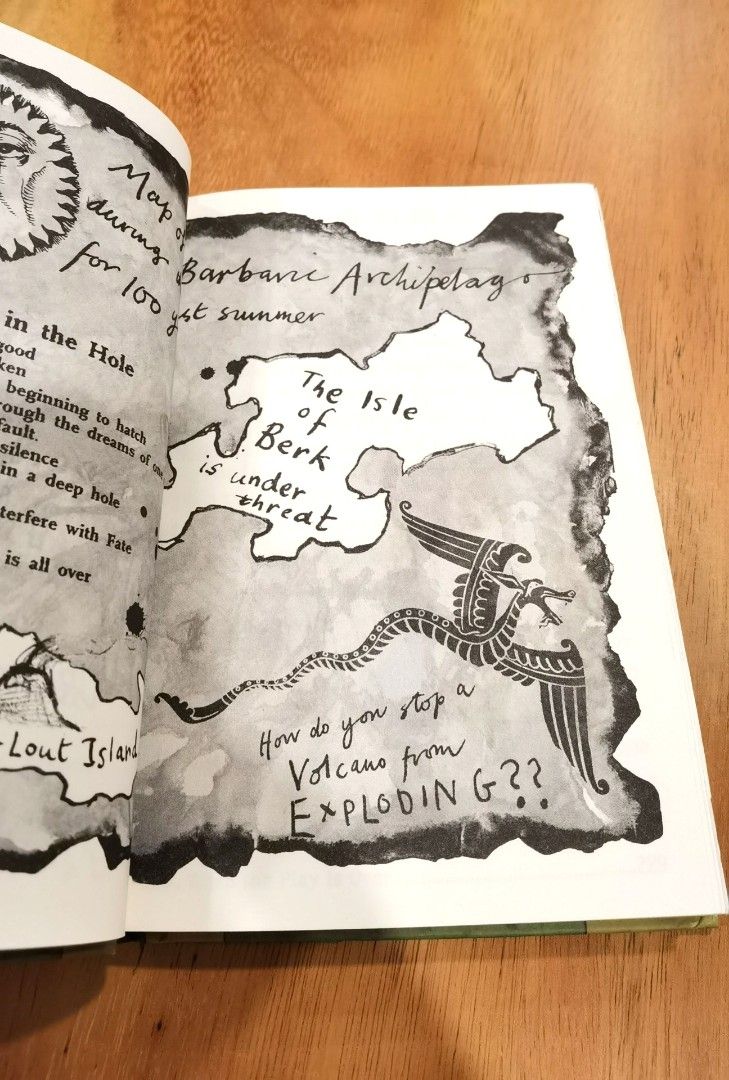 Map of
during
for 100
in the Hole
good
ken
beginning to hatch
rough the dreams of
fault.
silence
in a deep hole
terfere with Fate
is all over
-Lout Island
Barbaric Archipelago
st summer
The Isle
of
Berk
is under
threat
How do you stop a
Volcano from
EXPLODING??